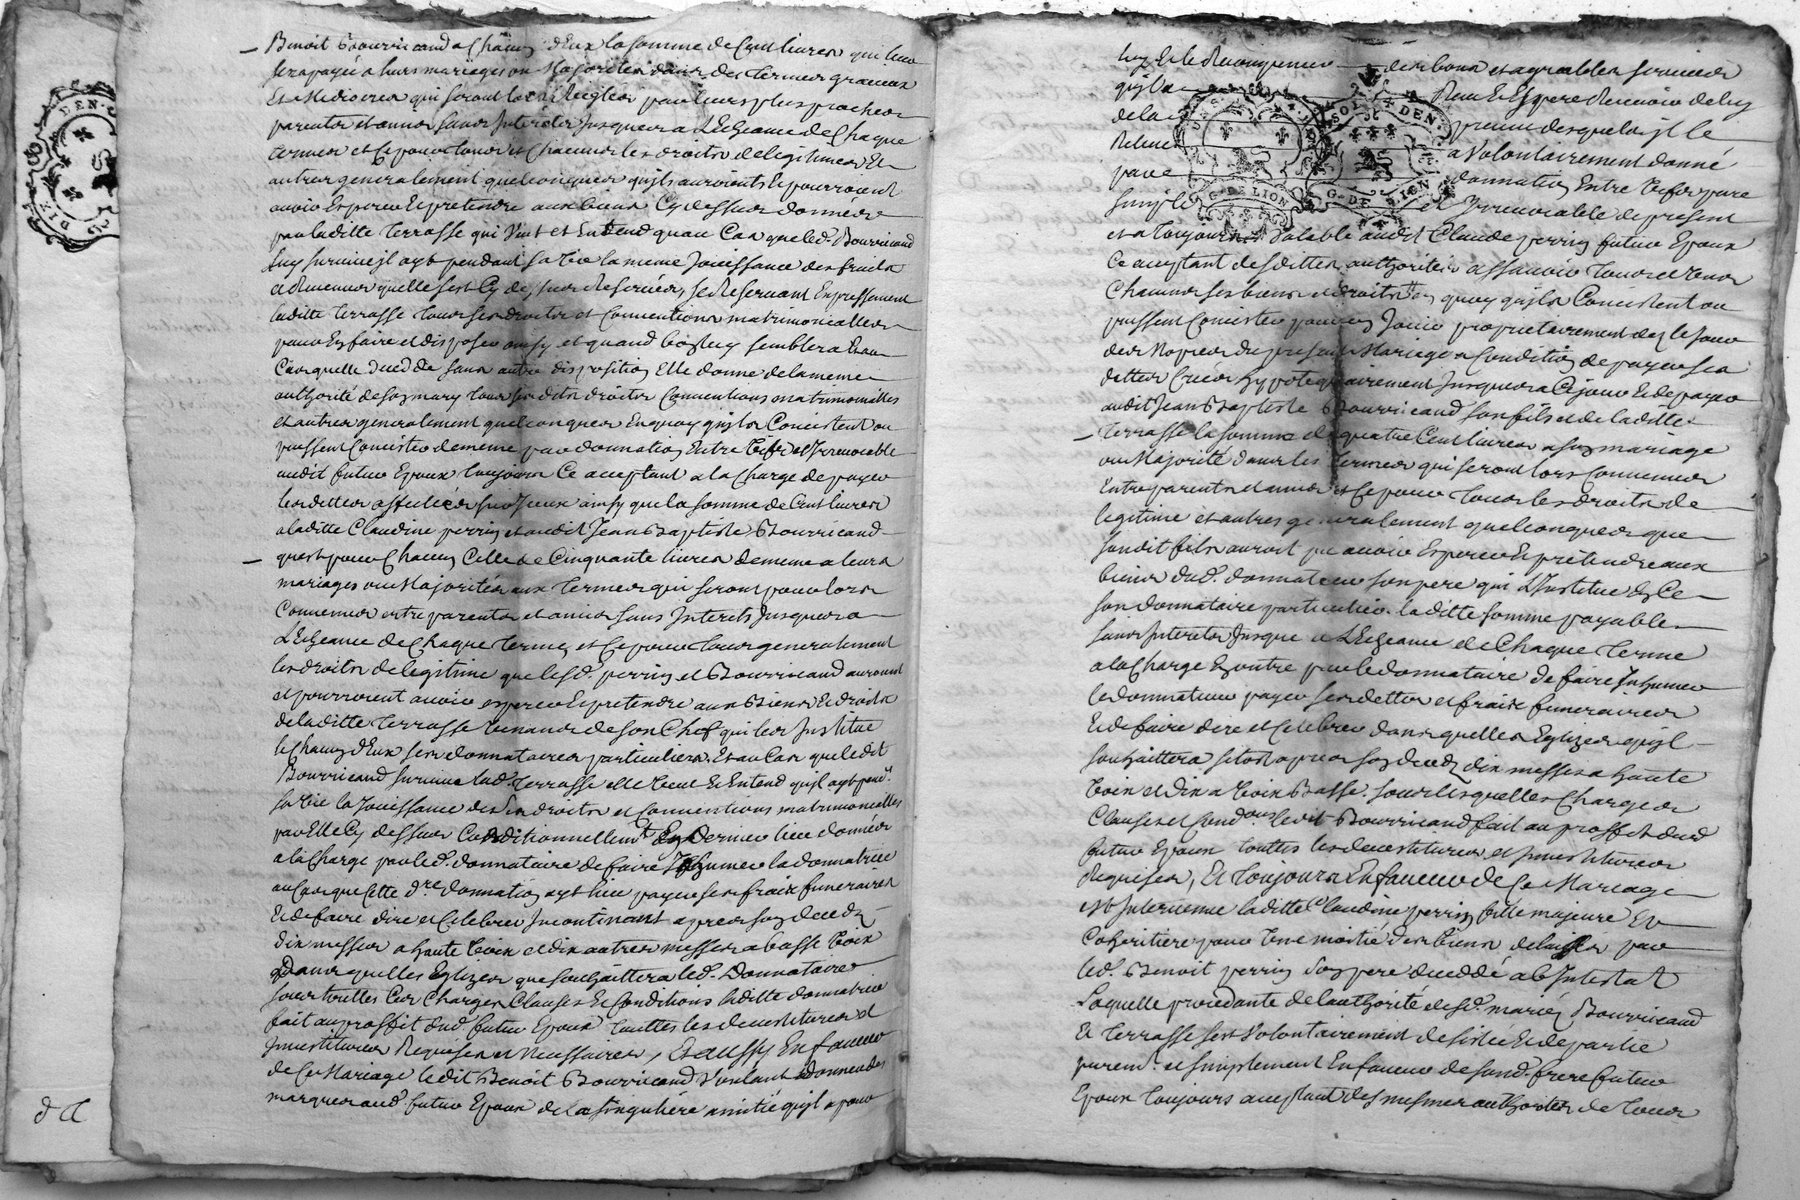 Benoit Bourricand a Chacun d'Eux la somme de Cent livres qui leur
sera payée a leurs mariages ou Majorités dans des termes gracieux
Et Mediocres qui seront lors Reiglés par leurs plus proches
parents et amis sans Interets Jusques a L'Echeance de Chaque
termes et Ce pour tous et Chacuns les droits de legitimes Et
autres generalement quelconques qu'ils auroients Et pourroient
avoir Esperer Et pretendre aux biens Cy dessus donnés
par laditte Terrasse qui Veut et Entend qu'au Cas que led. Bourricand
luy survive jl ayt pendant sa vie la meme Jouissance des fruits
et Revenus quelle s'est Cy dessus Reservés, se Reservant Expressement
laditte Terrasse tous ses droits et Conventions matrimonialles
pour En faire et disposer ainsy et quand bon luy semblera Et au
Cas quelle deced de sans autre disposition Elle donne de la meme
authorité de son mary tous ses dits droits Conventions matrimonialles
et autres generalement quelconques En quoy qu'ils Consistent ou
puissent Consister de meme par donnation Entre Vifs et Irrevocable
audit futur Epoux toujours Ce aceptant a la Charge de payer
les dettes affectées sur Iceux ainsy que la somme de Cent livres
a laditte Claudine perrin et audit Jean Baptiste Bourricand
quest pour Chacun Celle de Cinquante livres de meme a leurs
mariages ou Majorités aux termes qui seront pour lors
Convenus entre parents et amis sans Interets Jusques a
L'Echeance de Chaque terme, et Ce pour tous generalement
les droits de legitime que lesd. perrin et Bourricand auroient
et pourroient avoir esperer Et pretendre aux Biens Et droits
de laditte Terrasse Venants de son Chef qui les Institue
le Chacun d'Eux ses donnataires particuliers. Et au Cas que ledit
Bourricand survive lad. Terrasse elle Veut Et Entend qu'jl ayt pend.t
sa vie la Jouissance des dits droits et Conventions matrimonialles
par Elle Cy dessus Conditionnellem.t En dernier lieu donnés
a la Charge par led. donnataire de faire Inhumer la donnatrice
au Cas que Cette d.re donnation ayt lieu payer ses fraix funeraires
Et de faire dire et Celebrer Incontinant apres son deceds
dix messes a haute Voix et dix autres messes a basse Voix
Dans quelles Eglizes que souhaittera led. Donnataire
sous touttes Ces Charges Clauses Et Conditions laditte donnatrice
fait au proffit dud. futur Epoux touttes les devestitures et
Investitures Requises et Necessaires, Et aussy En faveur
de Ce Mariage ledit Benoit Bourricand Voulant donner des
marques aud. futur Epoux de la singuliere amitié qu'jl a pour
luy Et le Recompenser des bons et agreables services
qu'jl a Receu Et Espere Recevoir de luy
de la preuve desquels jl le
Releve a Volontairement donné
par donnation Entre Vifs pure
simple et Irrevocable de present
et a toujours Valable audit Claude perrin futur Epoux
Ce aceptant des dittes authorités assavoir tous et Uns
Chacuns ses biens et droits En quoy qu'jls Consistent ou
puissent Consister pour En Jouir proprietairement dez le jour
des Nopces du present Mariage a Condition de payer ses
dettes Crées hypotequairement Jusques a Ce jour Et de payer
audit Jean Baptiste Bourricand son fils et de laditte
Terrasse la somme de quatre Cent livres a son mariage
ou Majorité dans les termes qui seront lors Convenus
Entre parents et amis et Ce pour tous les droits de
legitime et autres generalement quelconques que
sondit fils auroit pu avoir Esperer Et prétendre aux
biens dud. donnateur son pere qui L'Institue En Ce
son donnataire particulier laditte somme payable
sans Interets Jusque a L'Echeance de Chaque terme
a la Charge En outre par le donnataire de faire Inhumer
le donnateur payer ses dettes et fraix funeraires
Et de faire dire et Celebrer dans quelles Eglizes qu'jl
souhaittera sitost apres son deceds dix messes a haute
Voix et dix a Voix Basse. sous lesquelles Charges
Clauses et Cond.ons ledit Bourricand fait au proffit dud.
futur Epoux touttes les devestitures et Investitures
Requises, Et toujours En faveur de Ce Mariage
est Intervenue laditte Claudine perrin fille majeure Et
Cohéritiere pour Une moitié des biens delaissés par
led. Benoit perrin son pere deceddé ab Intestat
Laquelle procedante de l'authorité desd. mariés Bourricand
Et Terrasse s'est Volontairement desistée Et departie
purem.t et simplement En faveur de sond. frere futur
Epoux toujours aceptant des mesmes authorités de tous